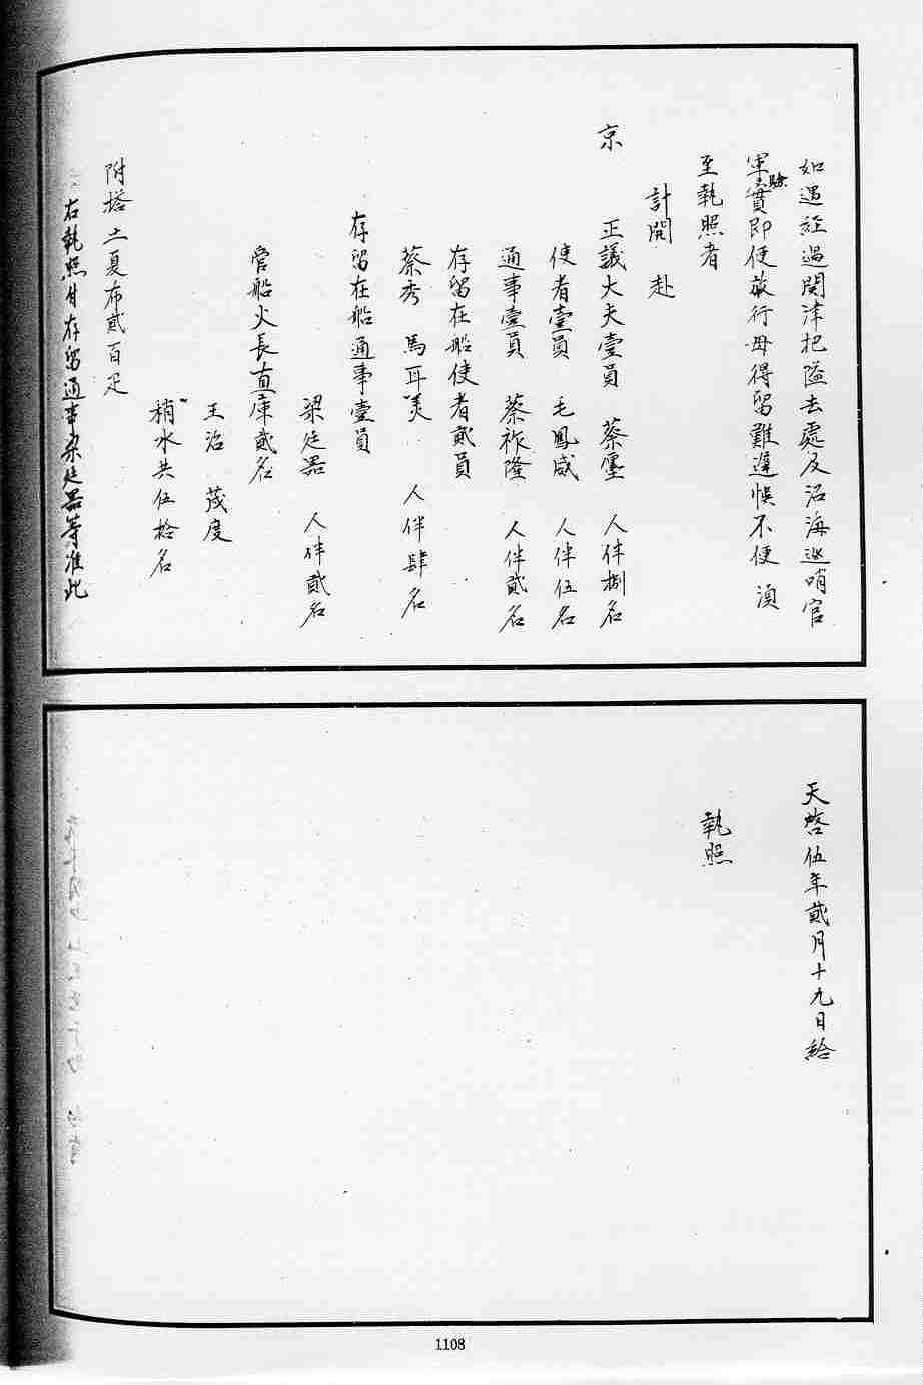 如遇經過関津把隘去處及沿海巡哨官
軍驗實即便放行毋得留難遲悞不便湏
至執照者
計開赴
京 正議大夫壹員 蔡廛 人伴捌名
使者壹員 毛鳳威 人伴伍名
通事壹員 蔡祚隆 人伴貳名
存留在船使者貳員
蔡秀 馬耳美 人伴肆名
存留在船通事壹員
梁廷器 人伴貳名
管船火長直庫貳名
王治 茂度
稍水共伍拾名
附搭土夏布貳百疋
右執照付存留通事梁廷器等准此
天啓伍年貳月十九日給
執照
1108